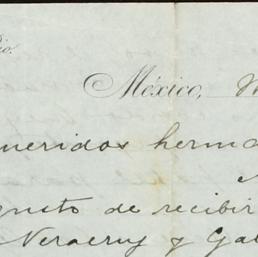 io.
México,
queridos herma
gusto de recibir
Veracruz y Gal